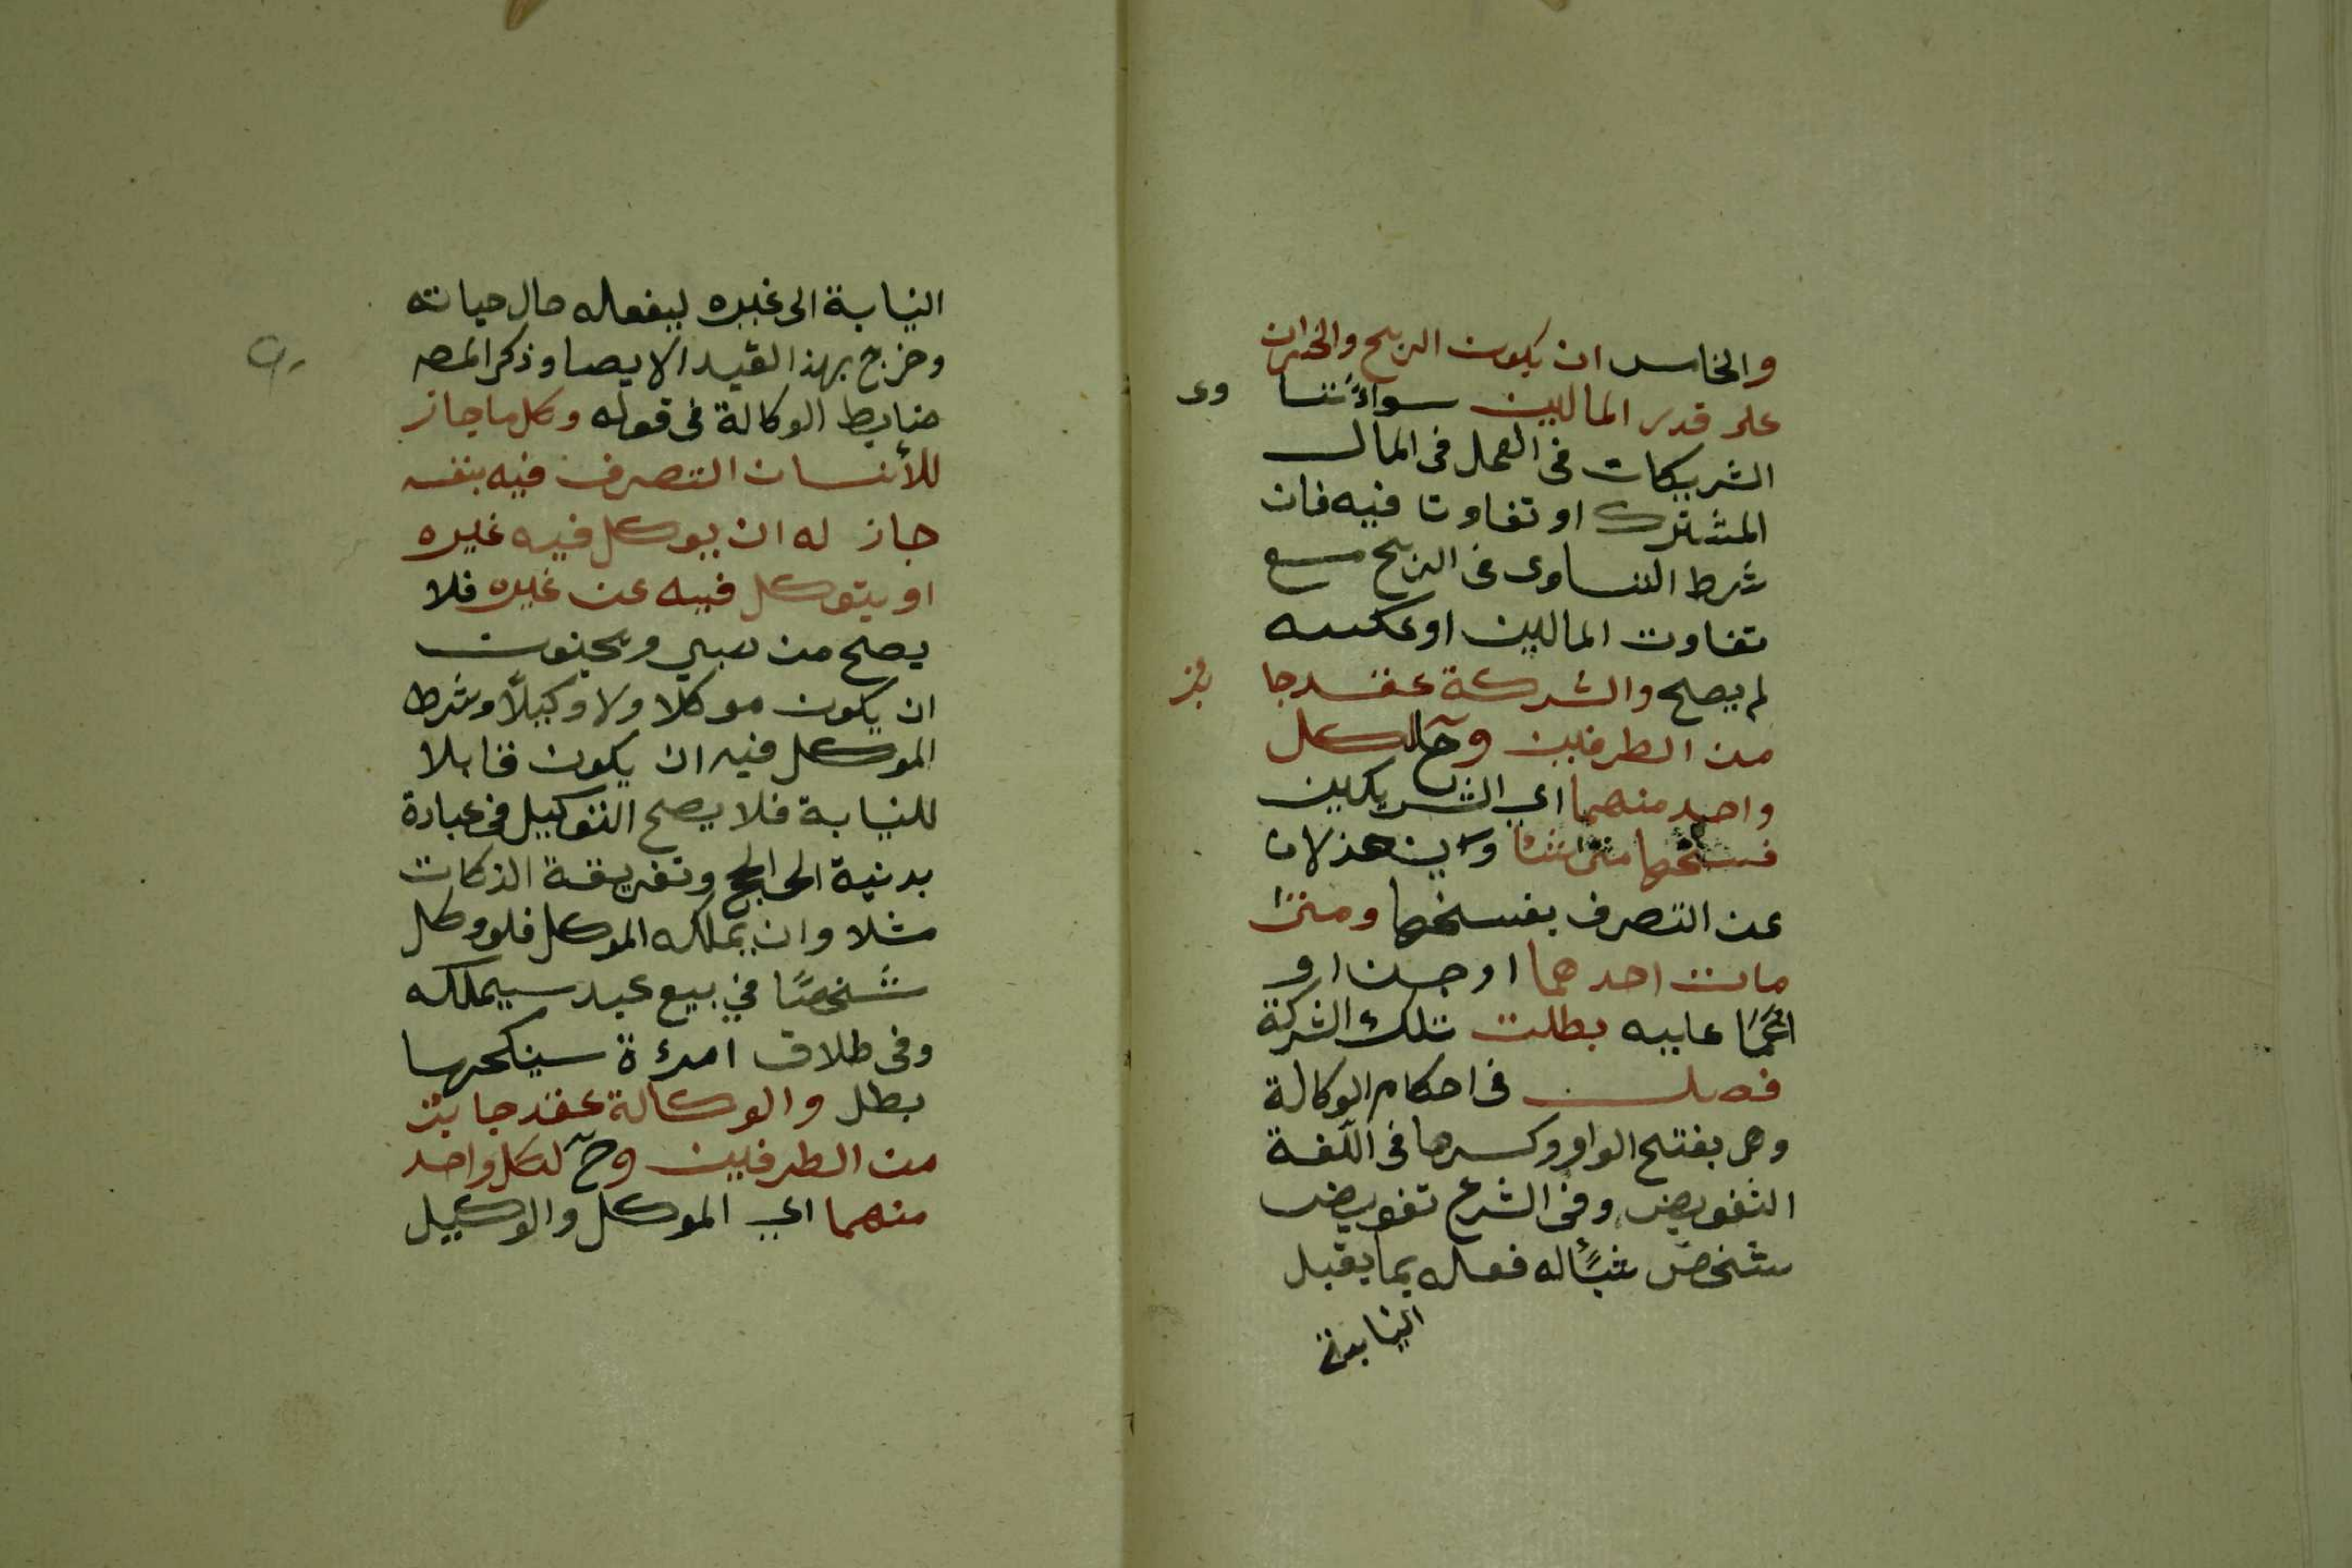 والخامس ان يكون الربح والخسران
على قدر المالين سواءً تسا وى
الشريكان فى العمل فى المال
المشترك او تفاوتا فيه فان
شرط التساوى فى الربح مع
تفاوت المالين اوعكسه
لم يصلح والشركة عقد جا يز
من الطرفين وح لكل
واحد منهما اي الشريكين
فسخها متى شا وينعذلان
عن التصرف بفسخها ومتى
مات احدهما اوجن او
اغمى عليه بطلت تلك الشركة
فصل فى احكام الوكالة
وهى بفتح الواو وكسرها فى اللغة
التفويض وفى الشرع تفويض
شخص شيأ له فعله بما يقبل
النيابة
النيابة الى غيره ليفعله حال حياته
وخرج بهذا القيد الايصا وذكر المصه
ضابط الوكالة فى قوله وكل ما جاز
للأنسان التصرف فيه بنفسه
جاز له ان يوكل فيه غيره
او يتوكل فيه عن غيره فلا
يصح من صبي ومجنون
ان يكون موكلا ولا وكيلا وشرط
الموكل فيه ان يكون قابلا
للنيابة فلا يصح التوكيل فى عبادة
بدنية الى الحج وتفريقة الزكات
مثلا وان يملكه الموكل فلو وكل
شخصًا في بيع عبد سيملكه
وفى طلاق امرءة سينكحها
بطل والوكالة عقد جايز
من الطرفين وح لكل واحد
منهما اي الموكل والوكيل